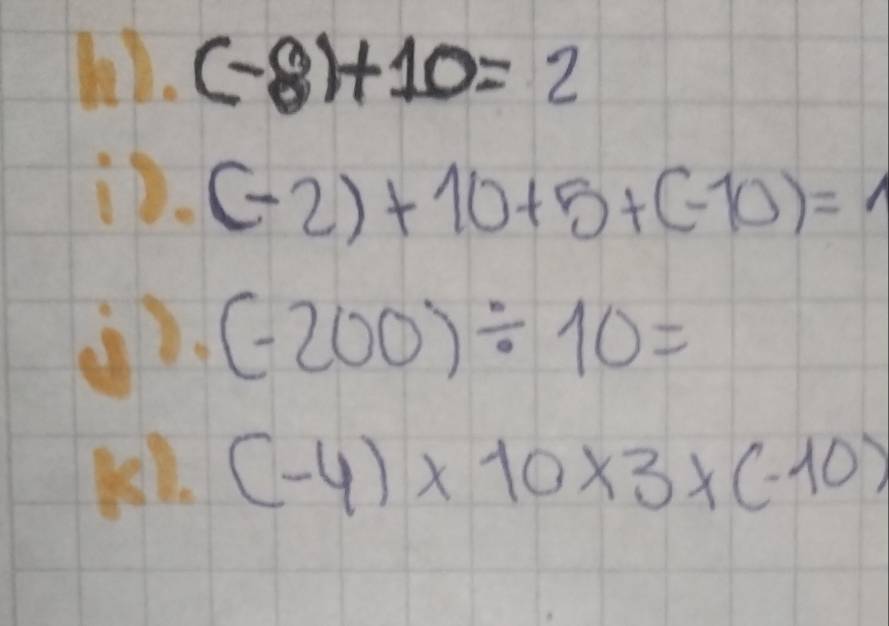 h). (-8)+10= 2
i). (-2)+10+5+(-10)=
j). (-200)÷10=
k). (-4)×10×3×(-10)